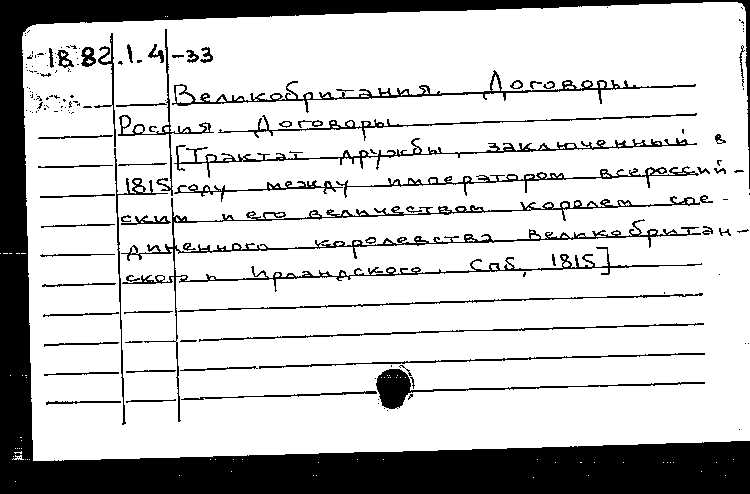 18.82.1.4-33
Великобритания. Договоры.
Россия. Договоры.
[Трактат дружбы, заключенный в
1815 году между императором всероссий-
ским и его величеством королем сое-
диненного королевства великобритан-
ского и Ирландского. Спб, 1815]